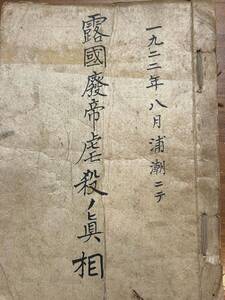 一九二二年八月浦潮ニテ
露國廢帝虐殺ノ眞相